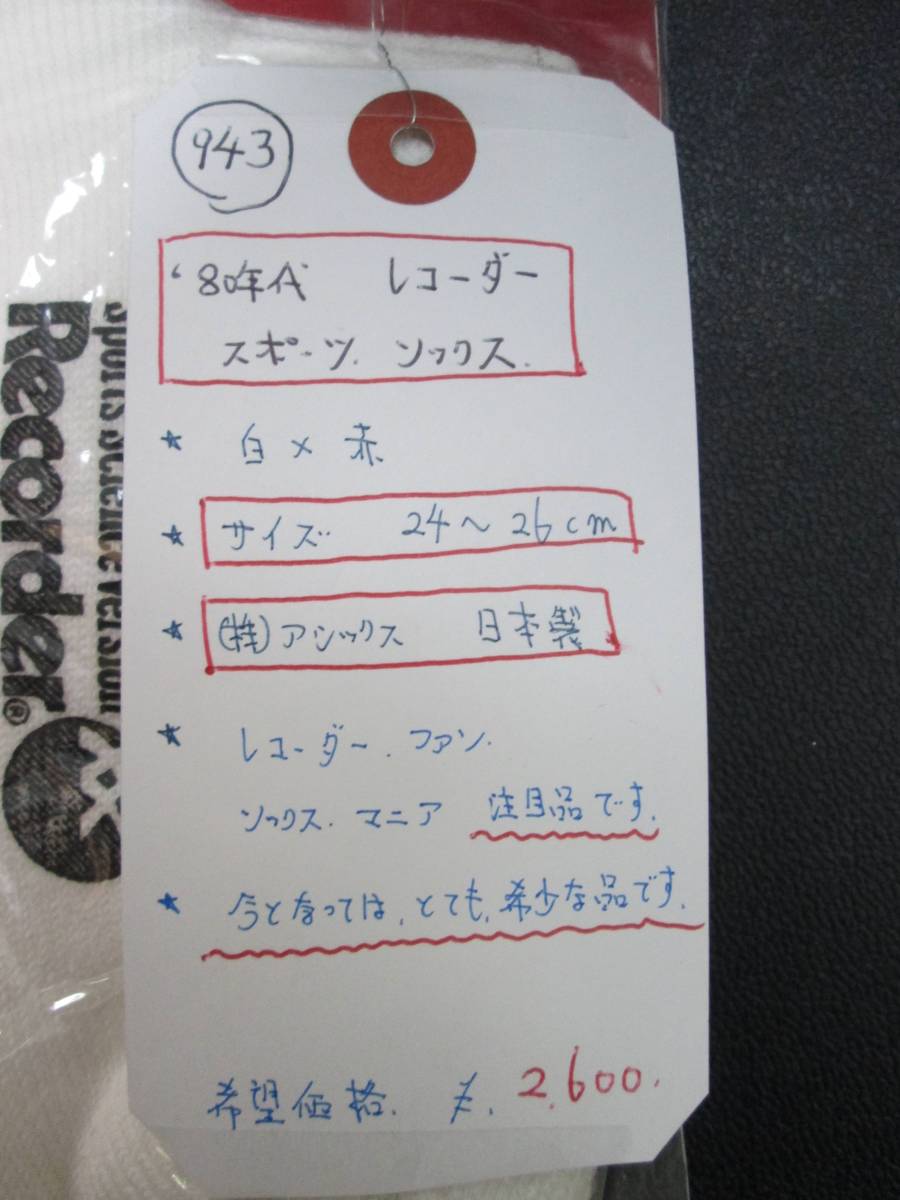 943
'80年代 レコーダー
スポーツ. ソックス.
★ 白×赤
★ サイズ 24〜26cm
★ (株)アシックス 日本製
★ レコーダー.ファン.
ソックス.マニア 注目品です.
★ 今となっては,とても,希少な品です.
希望価格. ¥. 2,600.
Sports Science Version
Recorder®